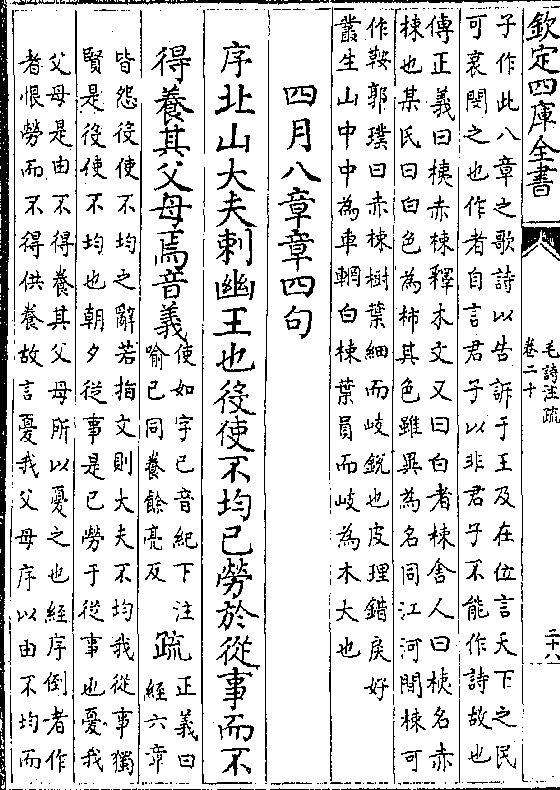 欽定四庫全書
毛詩注疏
卷二十
二十八
子作此八章之歌詩以告訴于王及在位言天下之民
可哀閔之也作者自言君子以非君子不能作詩故也
傳正義曰桋赤楝釋木文又曰白者楝舍人曰桋名赤
楝也某氏曰白色為柹其色雖異為名同江河閒楝可
作鞍郭璞曰赤楝樹葉細而岐銳也皮理錯戾好
叢生山中中為車輞白楝葉員而岐為木大也
四月八章章四句
序北山大夫刺幽王也役使不均已勞於從事而不
得養其父母焉音義
使如字已音紀下注
喻已同養餘亮反
疏
正義曰
經六章
皆怨役使不均之辭若指文則大夫不均我從事獨
賢是役使不均也朝夕從事是已勞于從事也憂我
父母是由不得養其父母所以憂之也經序倒者作
者恨勞而不得供養故言憂我父母序以由不均而